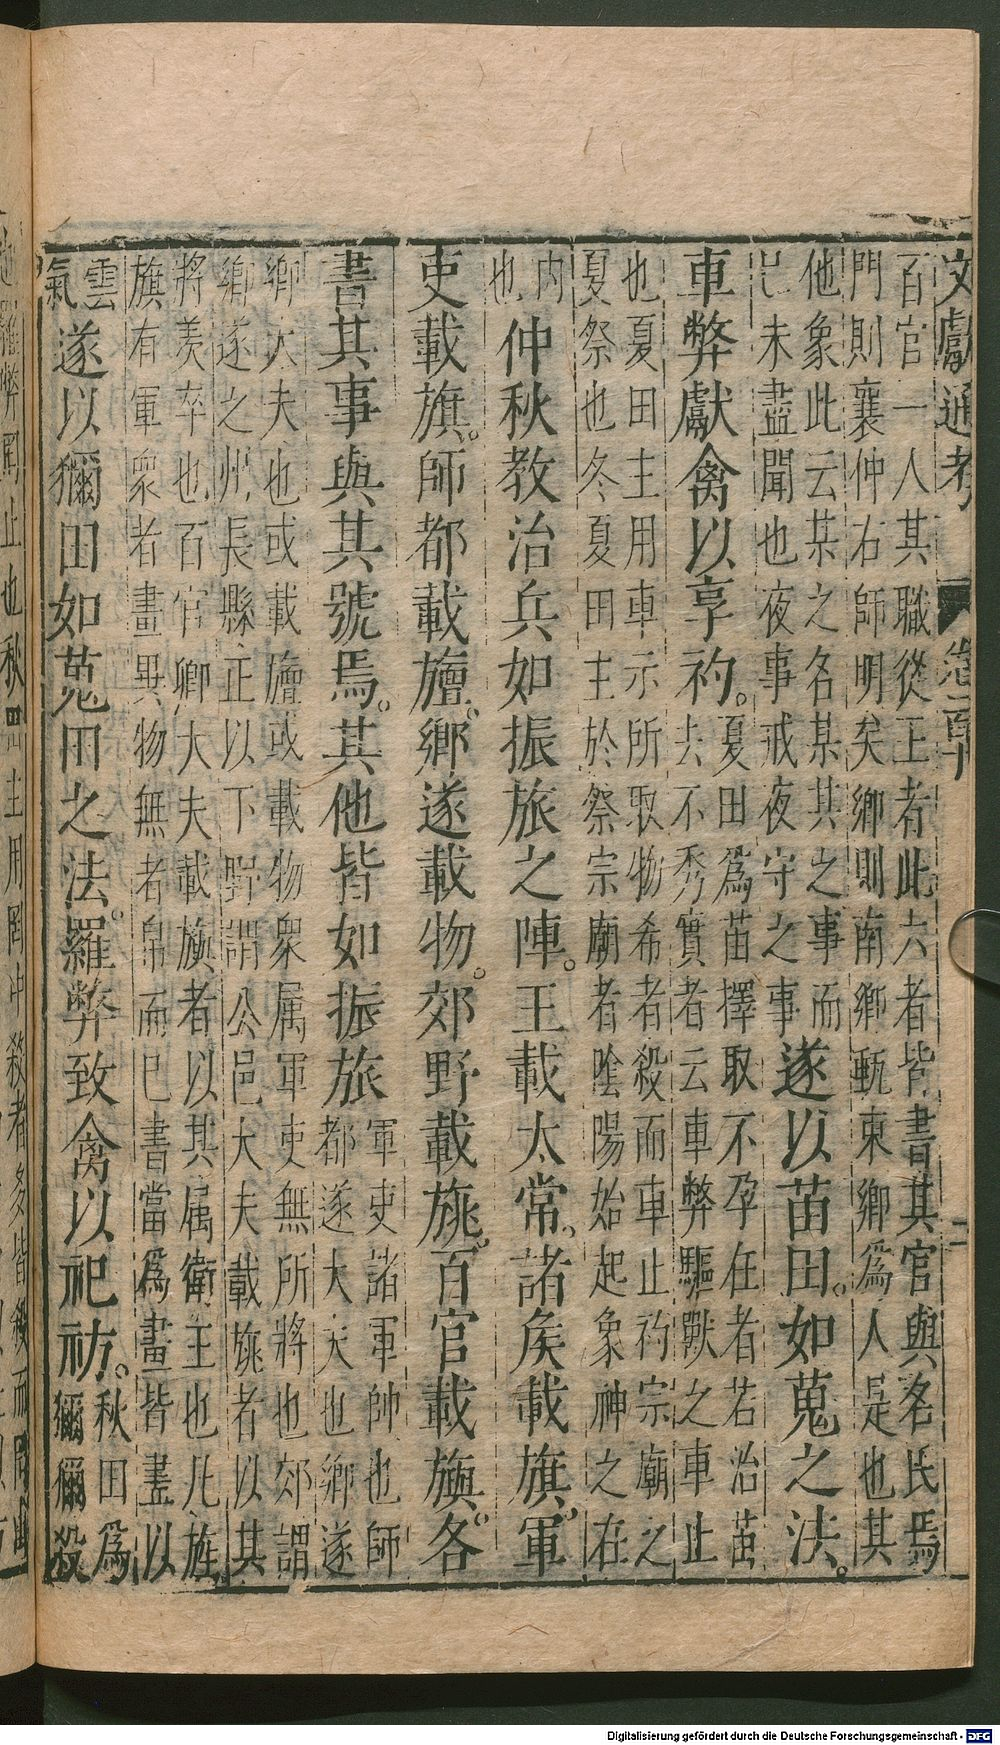 文獻通考
二
百官一人其職從王者此六者皆書其官與名氏焉
門則襄仲右師明矣鄉則南鄉甄東鄉爲人是也其
他象此云某之名某其之事而
已未盡聞也夜事戒夜守之事
遂以苗田。如蒐之法。
車弊獻禽以享礿。
夏田爲苗擇取不孕任者若治苗
去不秀實者云車弊驅獸之車止
也夏田主用車示所取物希者殺而車止礿宗廟之
夏祭也冬夏田主於祭宗廟者陰陽始起象神之在
内
也
仲秋教治兵如振旅之陣。王載太常。諸侯載旗。軍
吏載旗。師都載旜。鄉遂載物。郊野載旐。百官載旟。各
書其事與其號焉。其他皆如振旅
軍吏諸軍帥也師
都遂大夫也鄉遂
鄉大夫也或載旜或載物衆属軍吏無所將也郊謂
鄉遂之州長縣正以下野謂公邑大夫載旐者以其
將羨卒也百官卿大夫載旟者以其属衛王也凡旌
旗有軍衆者畫異物無者帛而已書當爲畫皆畫以
雲
氣
遂以獮田如蒐田之法。羅弊致禽以祀祊。
秋田爲
獮獮殺
弊罔止也秋田主用罔中殺者多皆殺而罔
Digitalisierung gefördert durch die Deutsche Forschungsgemeinschaft - DFG